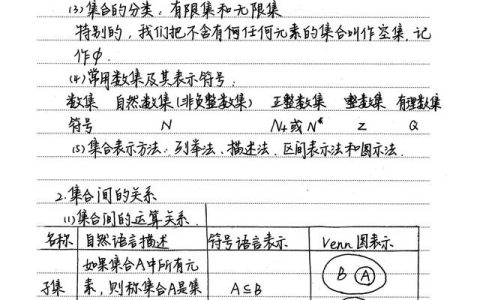 (3)集合的分类:有限集和无限集
特别的,我们把不含有何任何元素的集合叫作空集.记
作φ.
(4)常用数集及其表示符号:
数集 自然数集(非负整数集) 正整数集 整数集 有理数集
符号 N N+或N* Z Q
(5)集合表示方法:列举法、描述法、区间表示法和图示法.
2.集合间的关系
(1)集合间的运算关系.
名称 自然语言描述 符号语言表示 Venn图表示
如果集合A中所有元
子集 素,则称集合A是集 A⊆B
B A